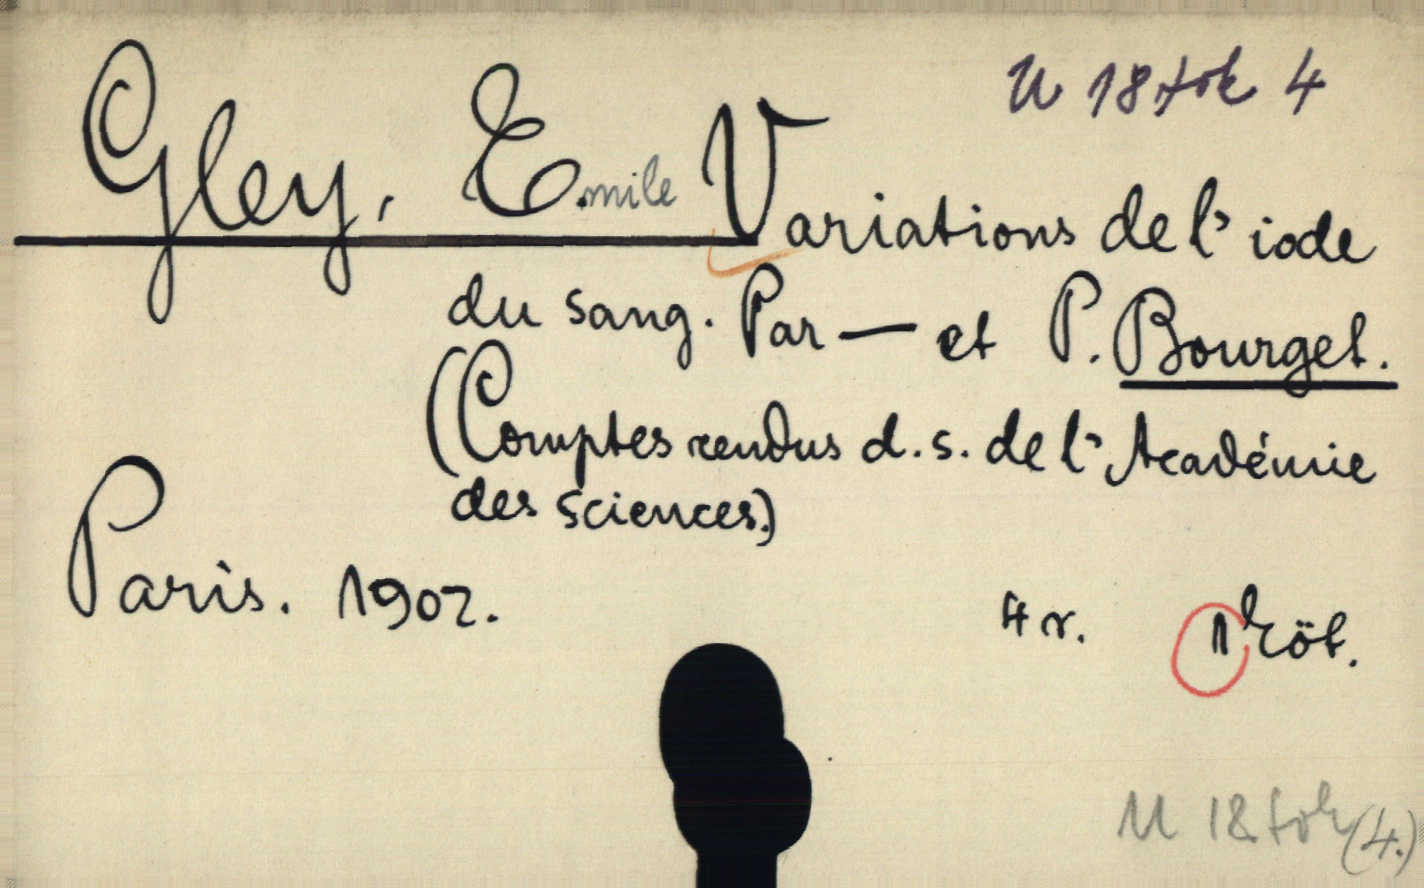 U 18 tok 4
Gley, E.mile Variations de l' iode
du sang. Par — et P. Bourget.
(Comptes rendus d. s. de l' Académie
des sciences.)
Paris. 1902.
4 r. 1 köt.
U 18 tok (4.)